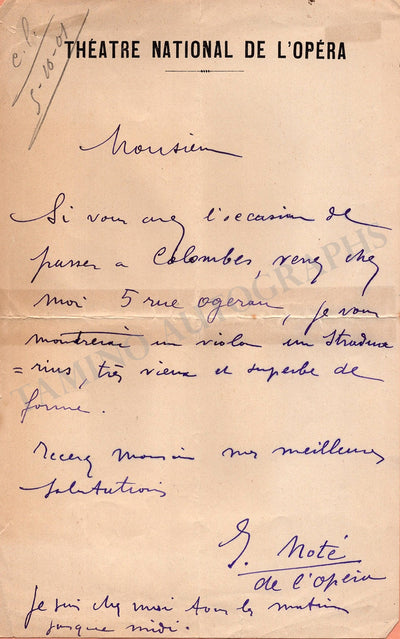 c. p.
5-10-01
THÉATRE NATIONAL DE L'OPÉRA
Monsieur
Si vous avez l'occasion de
passer a Colombes, venez chez
moi 5 rue ogerau, je vous
montrerai un violon un Stradiva
=rius, très vieux et superbe de
forme.
recevez Monsieur mes meilleures
salutations
J. Noté
de l'opéra
Je suis chez moi tous les matins
jusque midi.
TAMINO AUTOGRAPHS